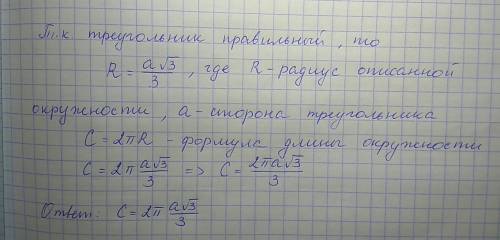 Т.к. треугольник правильный, то
R = a√3/3, где R-радиус описанной
окружности, a-сторона треугольника
C = 2πR - формула длины окружности
C = 2π a√3/3 => C = 2πa√3/3
Ответ: C = 2π a√3/3